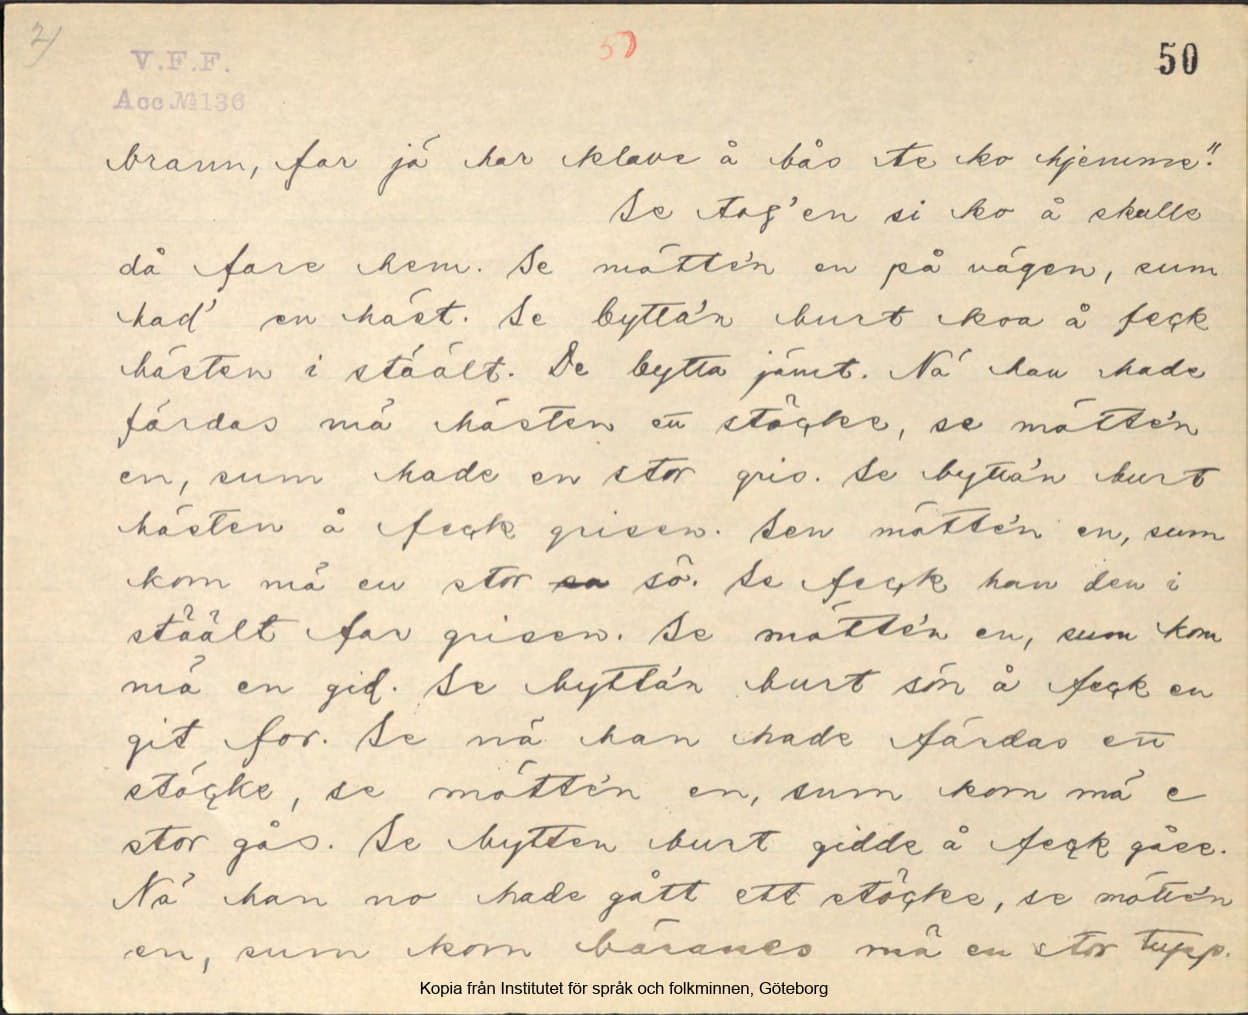 2)
V.F.F.
Acc. № 136
50
50
brann, far já har klave å bås te ko hjemme."
Se tog'en si ko å skulle
då fare hem. Se mötte'n en på vägen, sum
had' en häst. Se bytta'n burt koa å feck
hästen i stäält. De bytta jämt. Nä han hade
färdas mä hästen en stöcke, se mötte'n
en, sum hade en stor gris. Se bytta'n burt
hästen å feck grisen. Sen mötte'n en, sum
kom mä en stor sö. Se feck han den i
stäält far grisen. Se mötte'n en, sum kom
mä en gid. Se bytta'n burt sön å feck en
git for. Se nä han hade färdas en
stöcke, se mötte'n en, sum kom mä e
stor gås. Se bytten burt gidde å feck gåse.
Nä han no hade gått ett stöcke, se mötte'n
en, sum kom bäranes mä en stor tupp.
Kopia från Institutet för språk och folkminnen, Göteborg